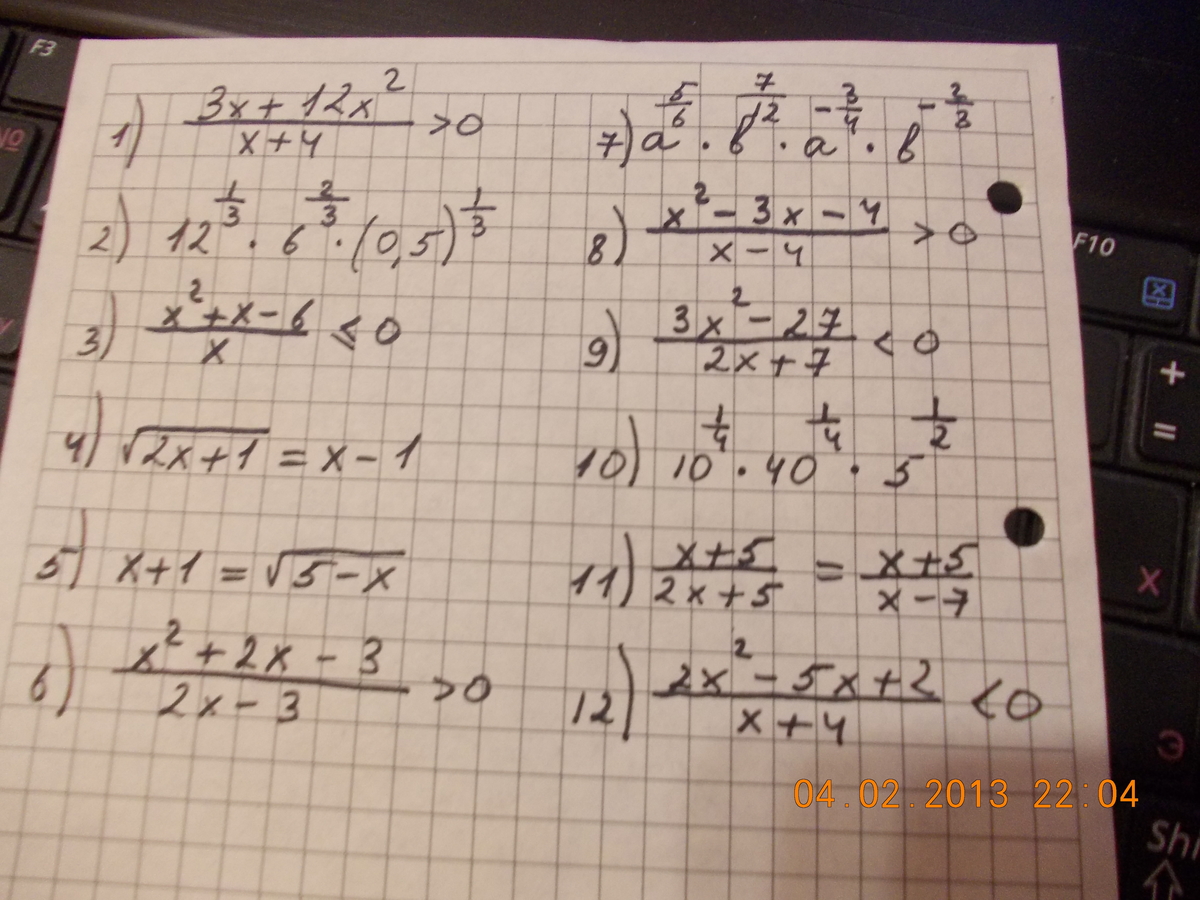 1) (3x + 12x²)/(x + 4) > 0
2) 12^(1/3) · 6^(2/3) · (0,5)^(1/3)
3) (x² + x - 6)/x ≤ 0
4) √(2x + 1) = x - 1
5) x + 1 = √(5 - x)
6) (x² + 2x - 3)/(2x - 3) > 0
7) a^(5/6) · b^(7/12) · a^(-3/4) · b^(-2/3)
8) (x² - 3x - 4)/(x - 4) > 0
9) (3x² - 27)/(2x + 7) < 0
10) 10^(1/4) · 40^(1/4) · 5^(1/2)
11) (x + 5)/(2x + 5) = (x + 5)/(x - 7)
12) (2x² - 5x + 2)/(x + 4) < 0
04.02.2013 22:04
F3
№
F10
+
=
X
Э
Shi